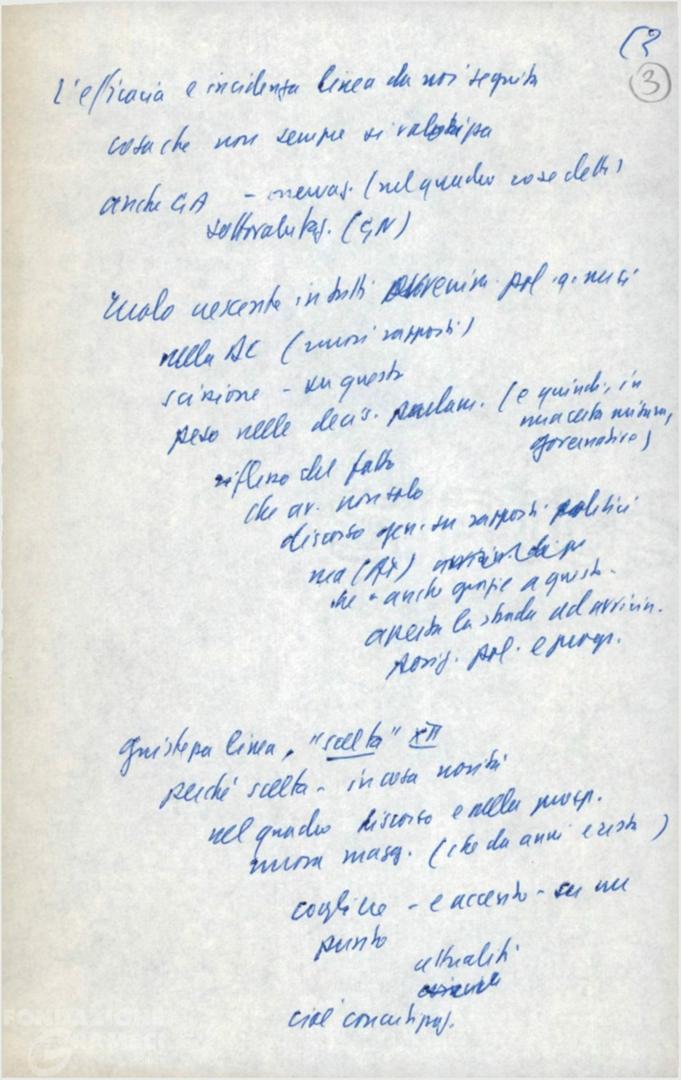 3
L'efficacia e incidenza linea da noi seguita
cosa che non sempre si valorizza
anche GA - (nel quadro cose dette)
sottovalutaz. (GN)
Ruolo crescente in tutti pol.
nella AC (nuovi rapporti)
scissione - su questo
peso nelle decis. parlam. (e quindi, in
una certa misura,
governative)
riflesso del fatto
che av. non solo
discorso gen. su rapporti politici
ma (AX)
che "anche grazie a questo -
aperta la strada ad avvicin.
posiz. pol. e progr.
Giustezza linea, "scelta" XII
perché scelta - in cosa novità
nel quadro discorso e nella prosp.
nuova magg. (che da anni esiste)
cogliere - e accento - su un
punto
attualità
cioè concentraz.
FONDAZIONE
GRAMSCI